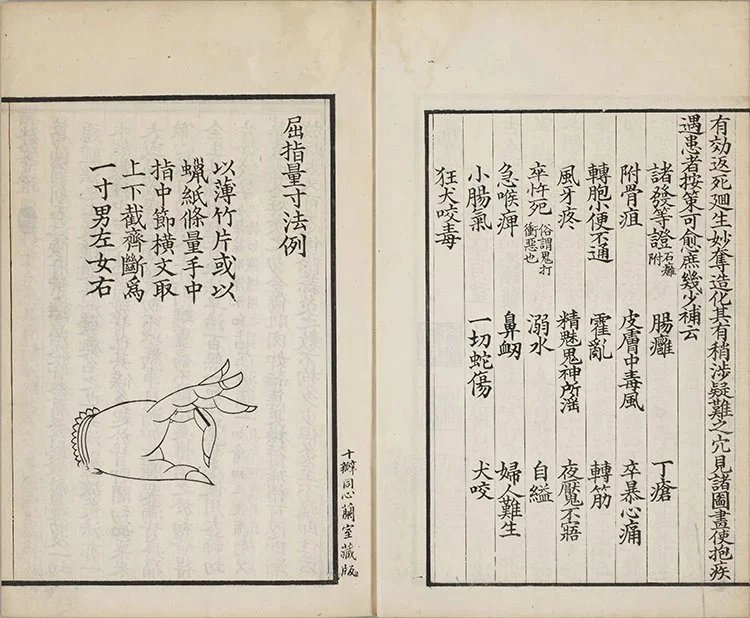 有効返死廻生妙奪造化其有稍涉疑難之穴見諸圖畫使抱疾
遇患者按策可愈庶幾少補云
諸發等證石癰附 腸癰 丁瘡
附骨疽 皮膚中毒風 卒暴心痛
轉胞小便不通 霍亂 轉筋
風牙疼 精魅鬼神所淫 夜魘不寤
卒忤死俗謂鬼打衝惡也 溺水 自縊
急喉痺 鼻衂 婦人難生
小腸氣 一切蛇傷 犬咬
狂犬咬毒
屈指量寸法例
以薄竹片或以
蠟紙條量手中
指中節橫文取
上下截齊斷爲
一寸男左女右
十瓣同心蘭室藏版